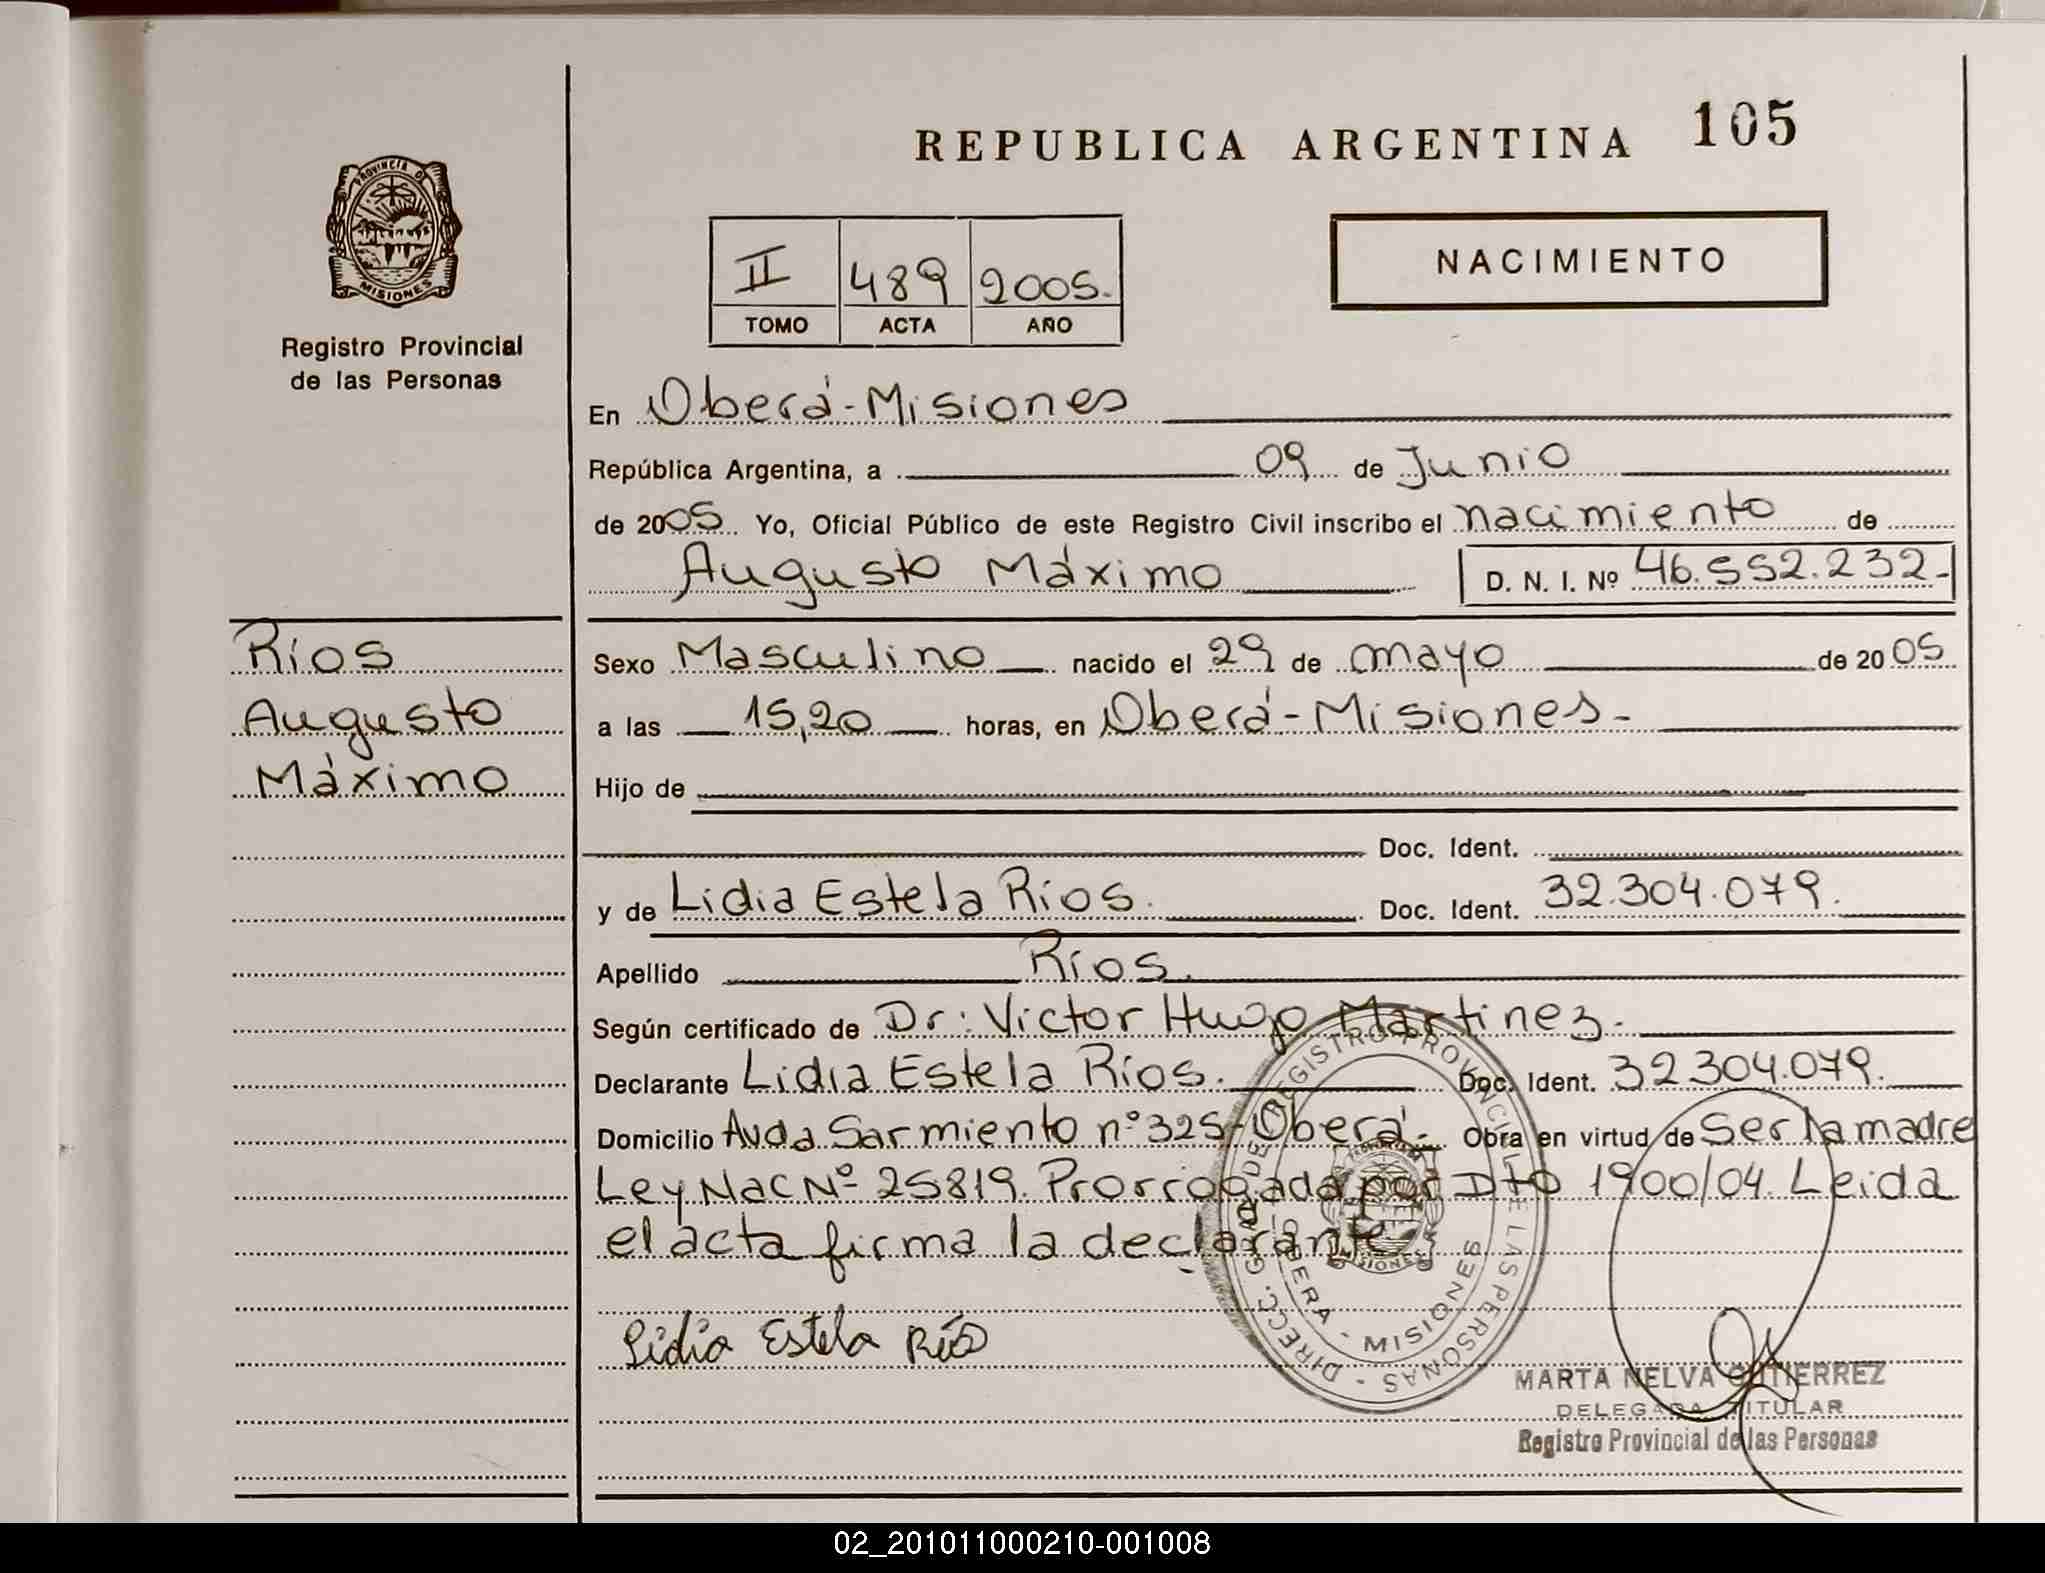 REPUBLICA ARGENTINA 105
PROVINCIA DE
MISIONES
Registro Provincial
de las Personas
II 489 2005.
TOMO ACTA AÑO
NACIMIENTO
En Oberá-Misiones
República Argentina, a 09 de Junio
de 2005 Yo, Oficial Público de este Registro Civil inscribo el nacimiento de
Augusto Máximo D. N. I. Nº 46.552.232-
Ríos
Augusto
Máximo
Sexo Masculino nacido el 29 de mayo de 2005
a las 15,20 horas, en Oberá-Misiones-
Hijo de
Doc. Ident.
y de Lidia Estela Ríos. Doc. Ident. 32.304.079.
Apellido Ríos.
Según certificado de Dr: Victor Hugo Martinez.
Declarante Lidia Estela Ríos. Doc. Ident. 32304.079.
Domicilio Avda Sarmiento nº325-Oberá. Obra en virtud de Ser la madre
Ley Nac Nº 25819. Prorrogada por Dto 1900/04. Leida
el acta firma la declarante
Lidia Estela Ríos
DIRECC. GRAL. DE REGISTRO PROVINCIAL DE LAS PERSONAS -
OBERA - MISIONES
MARTA NELVA GUTIERREZ
DELEGADA TITULAR
Registro Provincial de las Personas
02_201011000210-001008